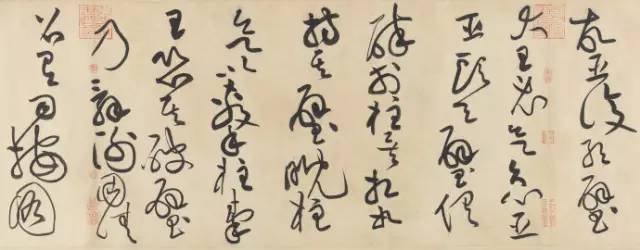 故臣復取璧
大王必欲急臣
臣頭今與璧俱
碎於柱矣相如
持其璧睨柱
欲以擊柱秦
王恐其破璧
乃辭謝固請
召有司按圖